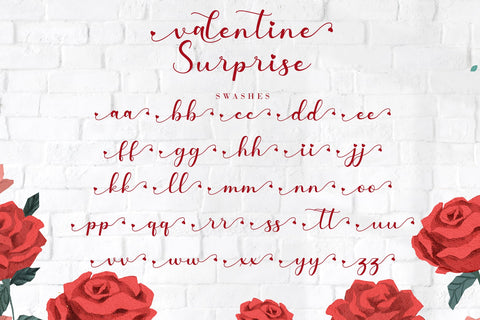 valentine
Surprise
SWASHES
aa bb cc dd ee
ff gg hh ii jj
kk ll mm nn oo
pp qq rr ss tt uu
vv ww xx yy zz